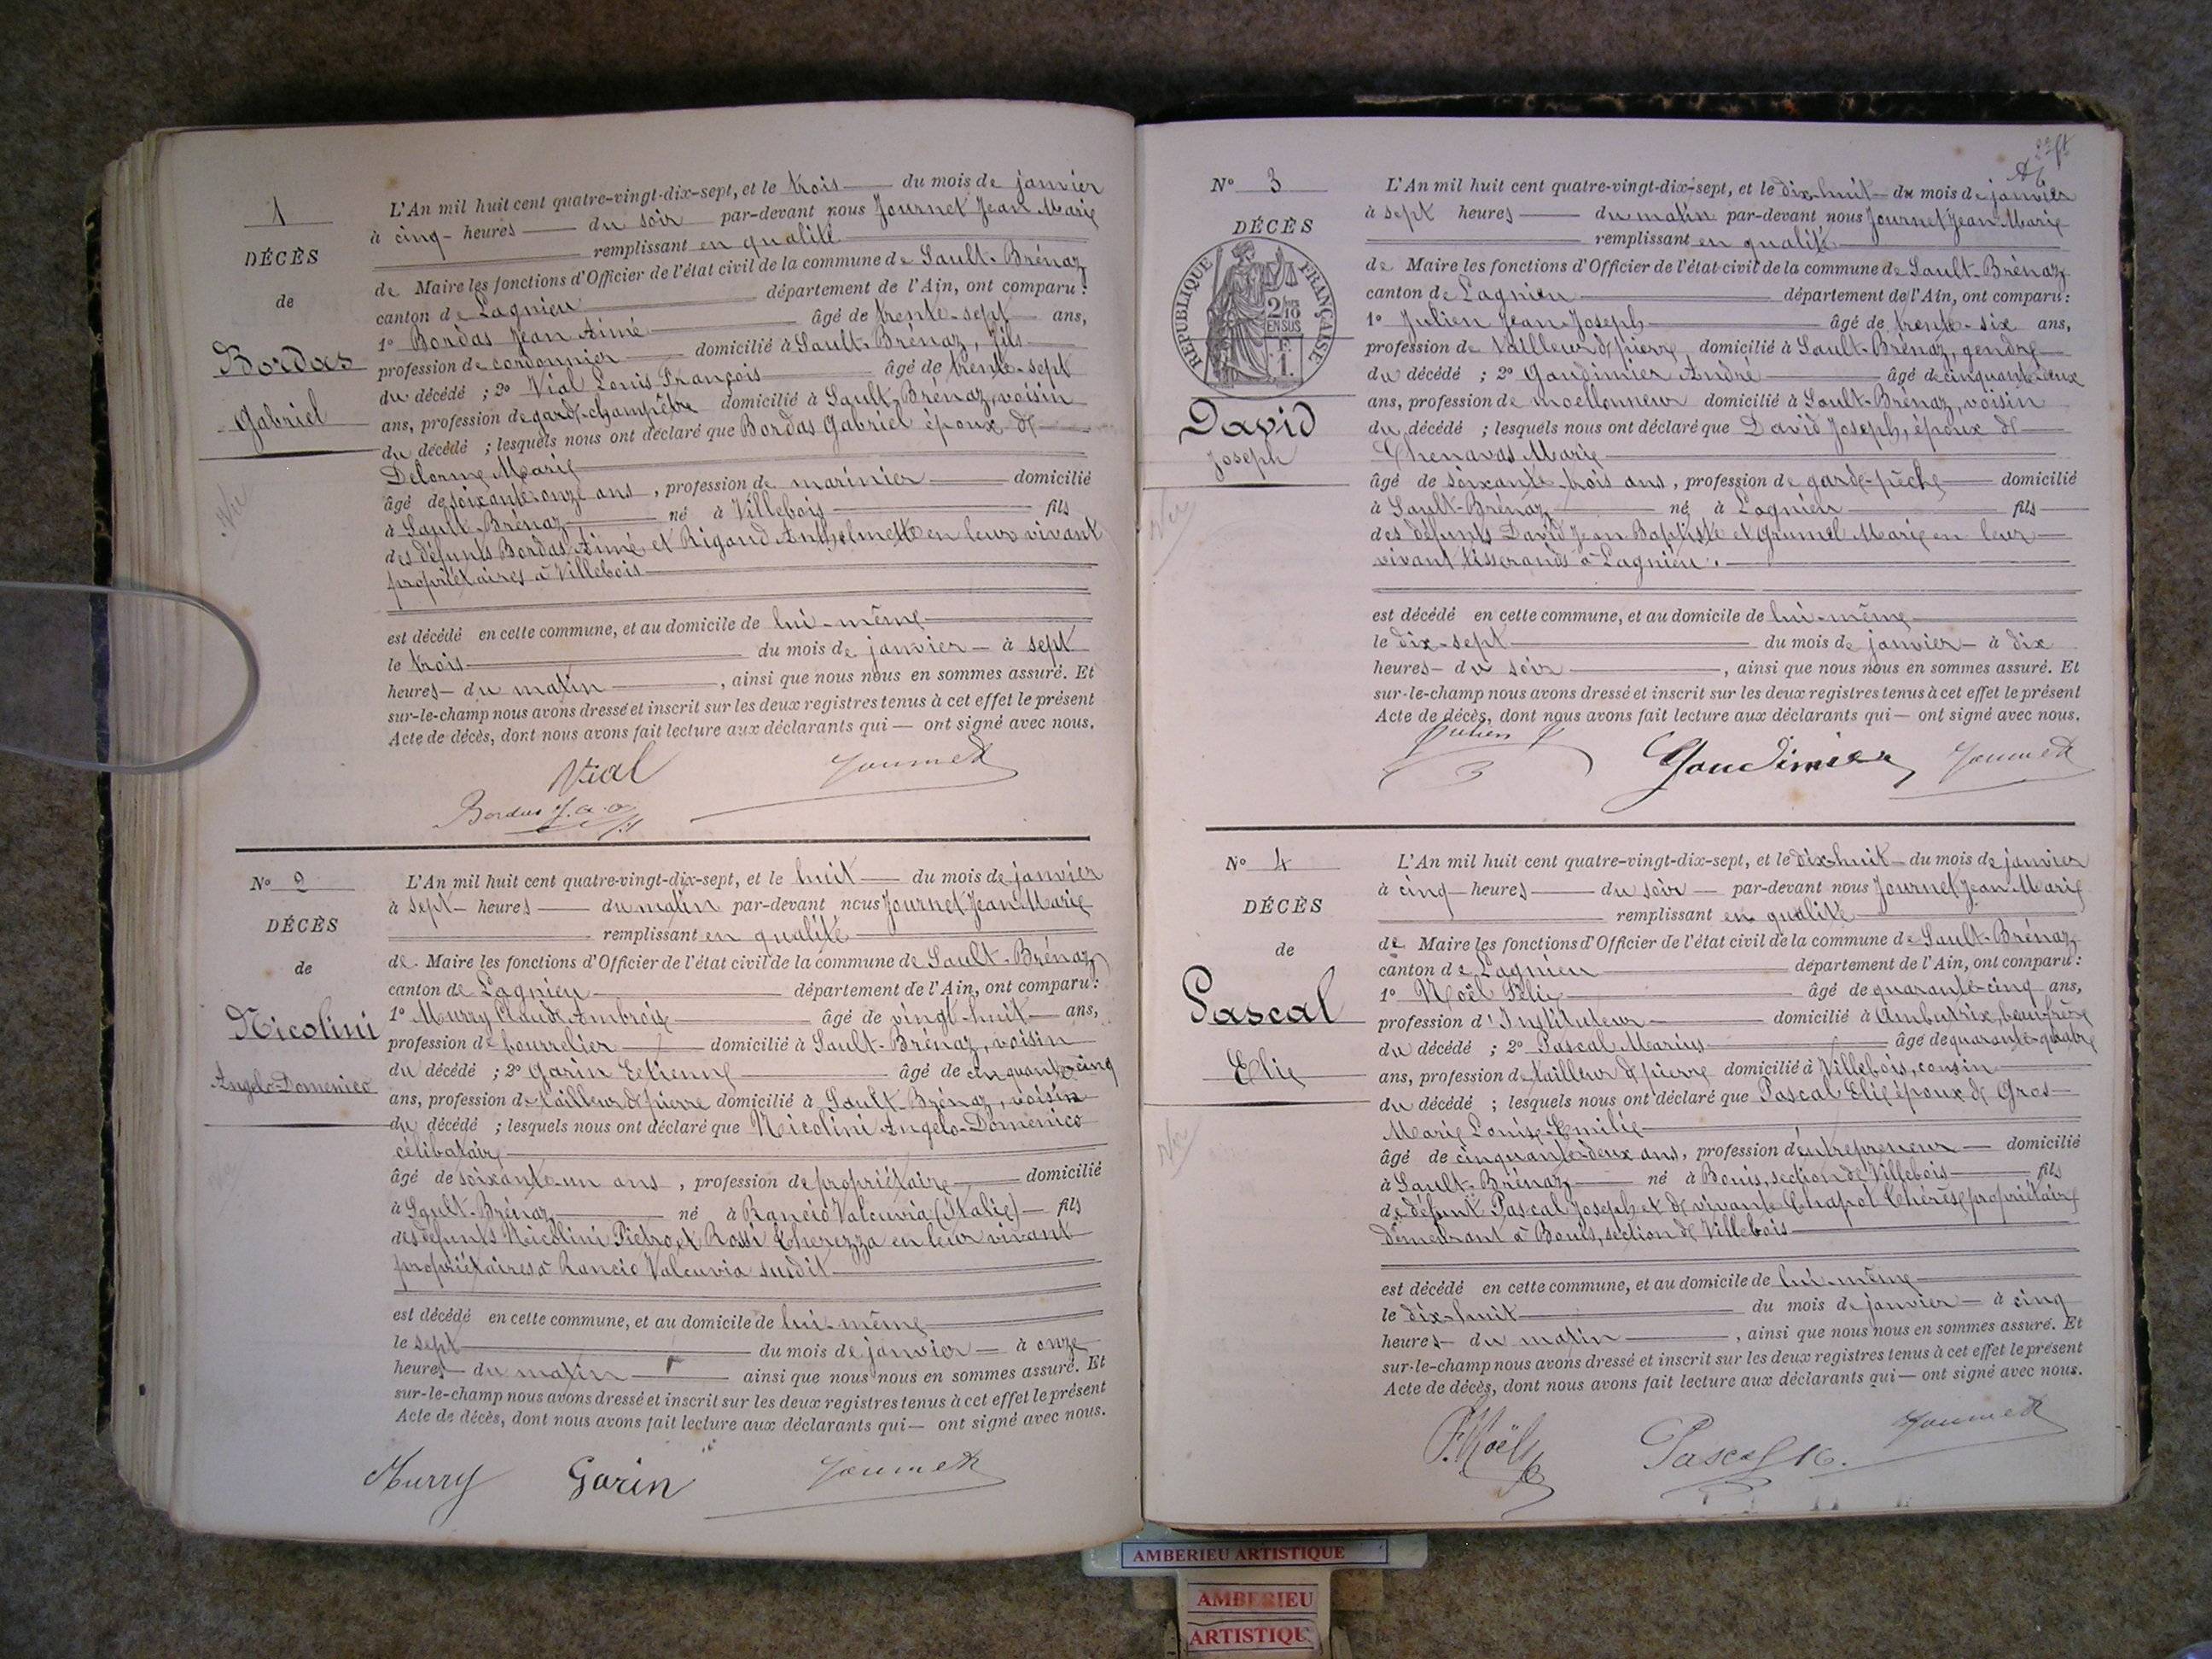 1
DÉCÈS
de
Bordas
Gabriel
Vic
L'An mil huit cent quatre-vingt-dix-sept, et le trois du mois de janvier
à cinq heures du soir par-devant nous Journet Jean Marie
remplissant en qualité
de Maire les fonctions d'Officier de l'état civil de la commune de Sault-Brénaz
canton de Lagnieu département de l'Ain, ont comparu :
1° Bordas Jean Aimé âgé de trente-sept ans,
profession de cordonnier domicilié à Sault-Brénaz, fils
du décédé ; 2° Vial Louis François âgé de trente-sept
ans, profession de garde-champêtre domicilié à Sault-Brénaz, voisin
du décédé ; lesquels nous ont déclaré que Bordas Gabriel époux de
Delorme Marie
âgé de soixante onze ans, profession de marinier domicilié
à Sault-Brénaz né à Villebois fils
des défunts Bordas Aimé et Rigaud Anthelmette en leur vivant
propriétaires à Villebois
est décédé en cette commune, et au domicile de lui-même
le trois du mois de janvier à sept
heures du matin, ainsi que nous nous en sommes assuré. Et
sur-le-champ nous avons dressé et inscrit sur les deux registres tenus à cet effet le présent
Acte de décès, dont nous avons fait lecture aux déclarants qui ont signé avec nous.
Vial Journet
Bordas J. a. fils
N° 2
DÉCÈS
de
Nicolini
Angelo-Domenico
L'An mil huit cent quatre-vingt-dix-sept, et le huit du mois de janvier
à sept heures du matin par-devant nous Journet Jean Marie
remplissant en qualité
de Maire les fonctions d'Officier de l'état civil de la commune de Sault-Brénaz
canton de Lagnieu département de l'Ain, ont comparu :
1° Murry Claude Ambroise âgé de vingt-huit ans,
profession de bourrelier domicilié à Sault-Brénaz, voisin
du décédé ; 2° Garin Etienne âgé de cinquante-cinq
ans, profession de tailleur de pierre domicilié à Sault-Brénaz, voisin
du décédé ; lesquels nous ont déclaré que Nicolini Angelo-Domenico
célibataire
âgé de soixante-un ans, profession de propriétaire domicilié
à Sault-Brénaz né à Rancio Valcuvia (Italie) fils
des défunts Nicolini Pietro et Rossi Therezza en leur vivant
propriétaires à Rancio Valcuvia susdit
est décédé en cette commune, et au domicile de lui-même
le sept du mois de janvier à onze
heures du matin ainsi que nous nous en sommes assuré. Et
sur-le-champ nous avons dressé et inscrit sur les deux registres tenus à cet effet le présent
Acte de décès, dont nous avons fait lecture aux déclarants qui ont signé avec nous.
Murry Garin Journet
N° 3
DÉCÈS
RÉPUBLIQUE FRANÇAISE
2/10
EN SUS
F.
1.
David
Joseph
L'An mil huit cent quatre-vingt-dix-sept, et le dix-huit du mois de janvier
à sept heures du matin par-devant nous Journet Jean Marie
remplissant en qualité
de Maire les fonctions d'Officier de l'état civil de la commune de Sault-Brénaz
canton de Lagnieu département de l'Ain, ont comparu :
1° Julien Jean-Joseph âgé de trente-six ans,
profession de tailleur de pierre domicilié à Sault-Brénaz, gendre
du décédé ; 2° Goudimier André âgé de cinquante-deux
ans, profession de moellonneur domicilié à Sault-Brénaz, voisin
du décédé ; lesquels nous ont déclaré que David Joseph, époux de
Chenavas Marie
âgé de soixante-trois ans, profession de garde-pêche domicilié
à Sault-Brénaz né à Lagnieu fils
des défunts David Jean Baptiste et Grumel Marie en leur
vivant tisserands à Lagnieu.
est décédé en cette commune, et au domicile de lui-même
le dix-sept du mois de janvier à dix
heures du soir, ainsi que nous nous en sommes assuré. Et
sur-le-champ nous avons dressé et inscrit sur les deux registres tenus à cet effet le présent
Acte de décès, dont nous avons fait lecture aux déclarants qui ont signé avec nous.
Julien J Goudimier Journet
N° 4
DÉCÈS
de
Pascal
Elie
L'An mil huit cent quatre-vingt-dix-sept, et le dix-huit du mois de janvier
à cinq heures du soir par-devant nous Journet Jean Marie
remplissant en qualité
de Maire les fonctions d'Officier de l'état civil de la commune de Sault-Brénaz
canton de Lagnieu département de l'Ain, ont comparu :
1° Noël Félix âgé de quarante-cinq ans,
profession d'Instituteur domicilié à Ambutrix, beau-frère
du décédé ; 2° Pascal Marius âgé de quarante-quatre
ans, profession de tailleur de pierre domicilié à Villebois, cousin
du décédé ; lesquels nous ont déclaré que Pascal Elie époux de Gros
Marie Louise-Emilie
âgé de cinquante-deux ans, profession d'entrepreneur domicilié
à Sault-Brénaz né à Bouis, section de Villebois fils
de défunt Pascal Joseph et de vivante Chapot Thérèse propriétaire
demeurant à Bouis, section de Villebois
est décédé en cette commune, et au domicile de lui-même
le dix-huit du mois de janvier à cinq
heures du matin, ainsi que nous nous en sommes assuré. Et
sur-le-champ nous avons dressé et inscrit sur les deux registres tenus à cet effet le présent
Acte de décès, dont nous avons fait lecture aux déclarants qui ont signé avec nous.
F. Noël Pascal M. Journet
AMBERIEU ARTISTIQUE
AMBERIEU
ARTISTIQUE